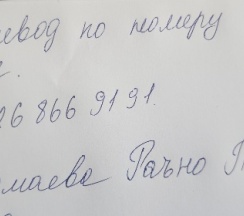 евод по номеру
26 866 91 91.
маева Гаъно